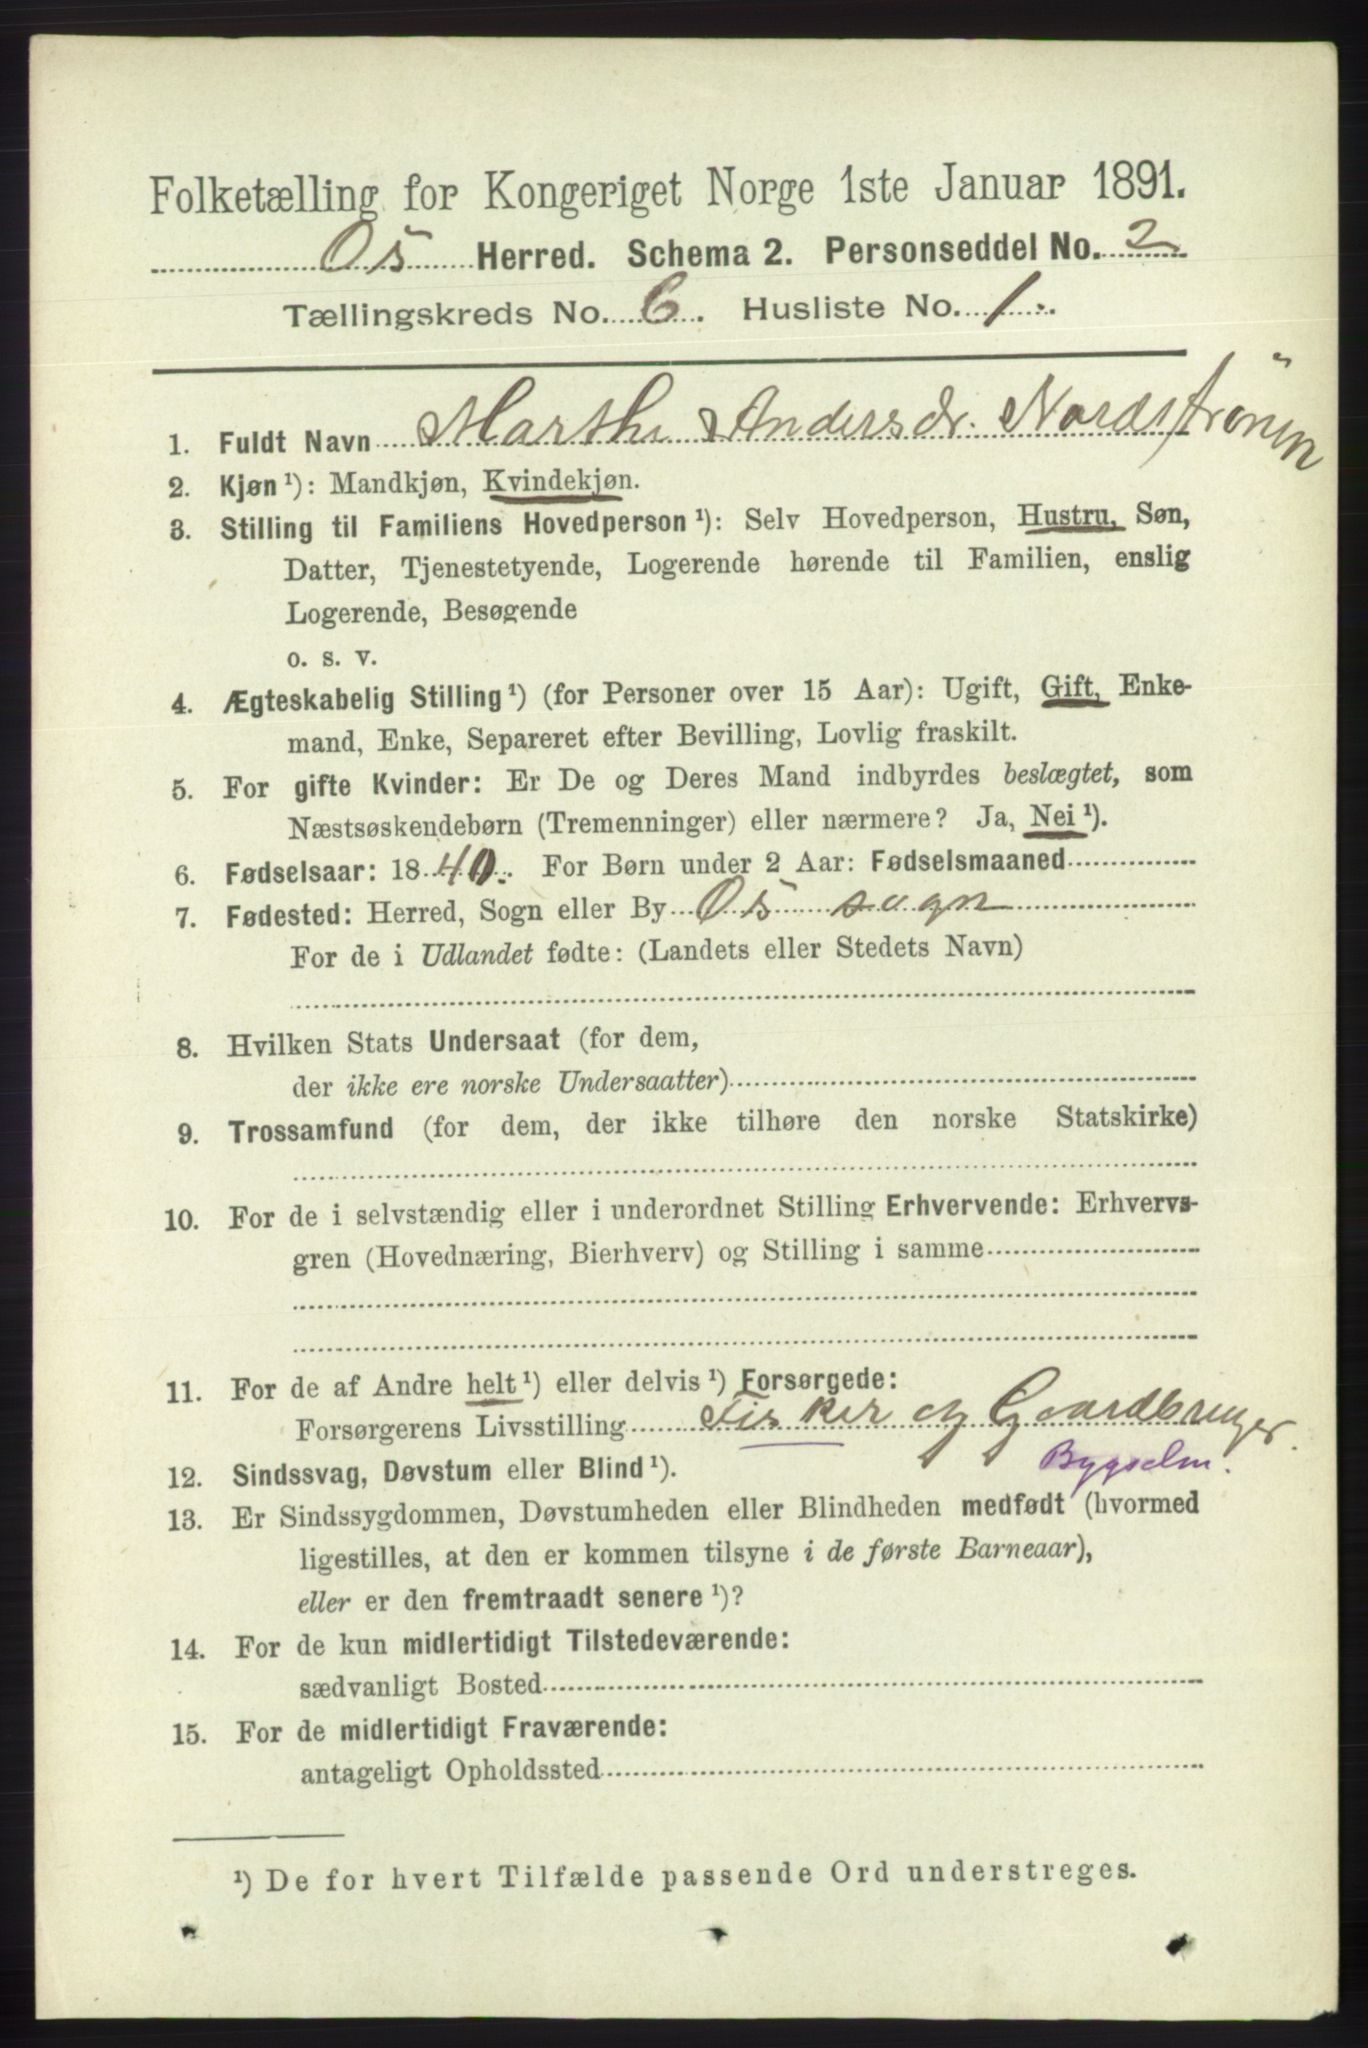 Folketælling for Kongeriget Norge 1ste Januar 1891.
Os Herred. Schema 2. Personseddel No. 2
Tællingskreds No. 6. Husliste No. 1.
1. Fuldt Navn Marthe Andersdr. Nordstrønen
2. Kjøn ¹): Mandkjøn, Kvindekjøn.
3. Stilling til Familiens Hovedperson ¹): Selv Hovedperson, Hustru, Søn,
Datter, Tjenestetyende, Logerende hørende til Familien, enslig
Logerende, Besøgende
o. s. v.
4. Ægteskabelig Stilling ¹) (for Personer over 15 Aar): Ugift, Gift, Enke-
mand, Enke, Separeret efter Bevilling, Lovlig fraskilt.
5. For gifte Kvinder: Er De og Deres Mand indbyrdes beslægtet, som
Næstsøskendebørn (Tremenninger) eller nærmere? Ja, Nei ¹).
6. Fødselsaar: 1840. For Børn under 2 Aar: Fødselsmaaned
7. Fødested: Herred, Sogn eller By Os sogn
For de i Udlandet fødte: (Landets eller Stedets Navn)
8. Hvilken Stats Undersaat (for dem,
der ikke ere norske Undersaatter)
9. Trossamfund (for dem, der ikke tilhøre den norske Statskirke)
10. For de i selvstændig eller i underordnet Stilling Erhvervende: Erhvervs-
gren (Hovednæring, Bierhverv) og Stilling i samme
11. For de af Andre helt ¹) eller delvis ¹) Forsørgede:
Forsørgerens Livsstilling Fisker og Gaardbruger.
Bygselm.
12. Sindssvag, Døvstum eller Blind ¹).
13. Er Sindssygdommen, Døvstumheden eller Blindheden medfødt (hvormed
ligestilles, at den er kommen tilsyne i de første Barneaar),
eller er den fremtraadt senere ¹)?
14. For de kun midlertidigt Tilstedeværende:
sædvanligt Bosted
15. For de midlertidigt Fraværende:
antageligt Opholdssted
¹) De for hvert Tilfælde passende Ord understreges.